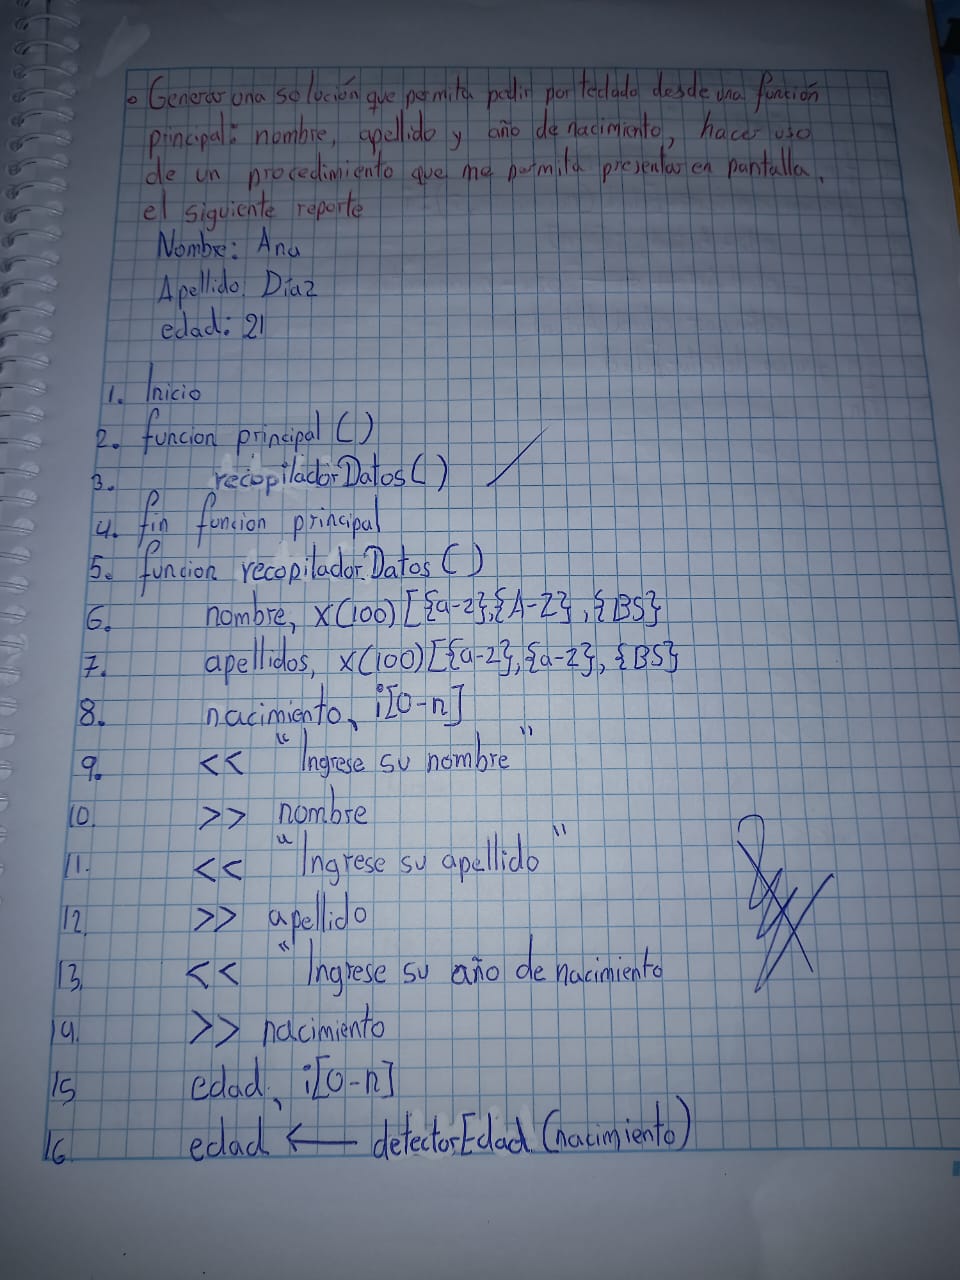 • Generar una solución que permita pedir por teclado desde una función
principal: nombre, apellido y año de nacimiento, hacer uso
de un procedimiento que me permita presentar en pantalla,
el siguiente reporte
Nombre: Ana
Apellido: Díaz
edad: 21
1. Inicio
2. funcion principal ()
3. recopiladorDatos()
4. fin funcion principal
5. funcion recopiladorDatos ()
6. nombre, x(100)[{a-z},{A-Z},{BS}
7. apellidos, x(100)[{a-z},{a-z}, {BS}
8. nacimiento, i[0-n]
9. << "Ingrese su nombre"
10. >> nombre
11. << "Ingrese su apellido"
12. >> apellido
13. << "Ingrese su año de nacimiento
14. >> nacimiento
15 edad, i[0-n]
16 edad ← detectorEdad (nacimiento)